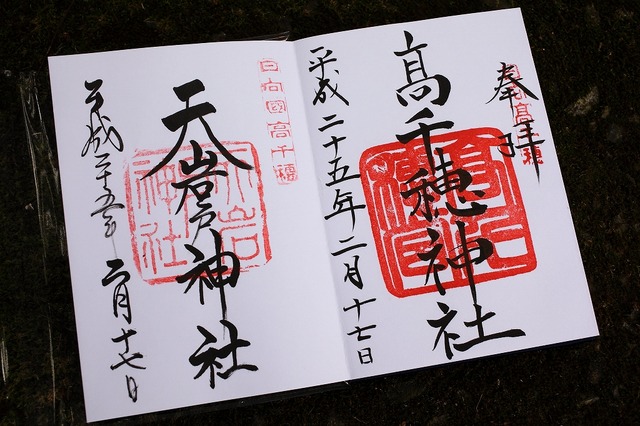 奉拝
高千穂神社
平成二十五年二月十七日
日向國高千穂
天岩戸神社
平成二十五年二月十七日